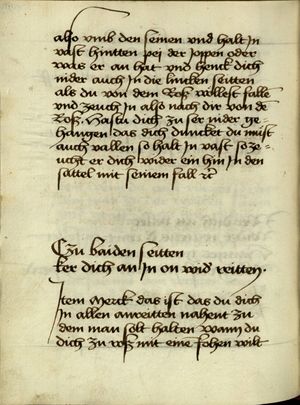 also vmb den seinen vnd halt In
vast hintten pei der Joppen oder
was er an hat vnd henck dich
nider auch In die lincken seitten
als du von dem Roß wellest falle
vnd zeuch In also nach dir von de
Roß. Hastu dich zu ser nider ge-
hangen das dich duncket du must
auch vallen so halt In vast so ze-
ucht er dich wider ein hin In den
sattel mit seinem fall rc
Czu baiden seitten
ker dich an In on wid ritten.
Item Merck das ist das du dich
In allen anreitten nahent zu
dem man solt halten wann du
dich zu roß mit eine sohen wilt